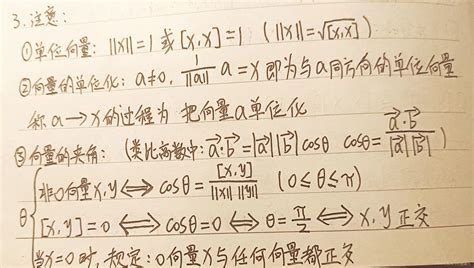 3.注意:
①单位向量: ||x||=1 或 [x,x]=1 ( ||x||=√[x,x] )
②向量的单位化: a≠0, 1/||a|| a = x 即为与a同方向的单位向量
称 a→x 的过程为 把向量a单位化
③向量的夹角: (类比高数中: a⃗·b⃗=|a⃗||b⃗|cosθ cosθ= a⃗·b⃗/|a⃗||b⃗| )
θ { 非0向量x,y ⟺ cosθ = [x,y]/||x|| ||y|| (0≤θ≤π)
[x,y]=0 ⟺ cosθ=0 ⟺ θ=π/2 ⟺ x,y 正交
当x=0时, 规定: 0向量x与任何向量都正交